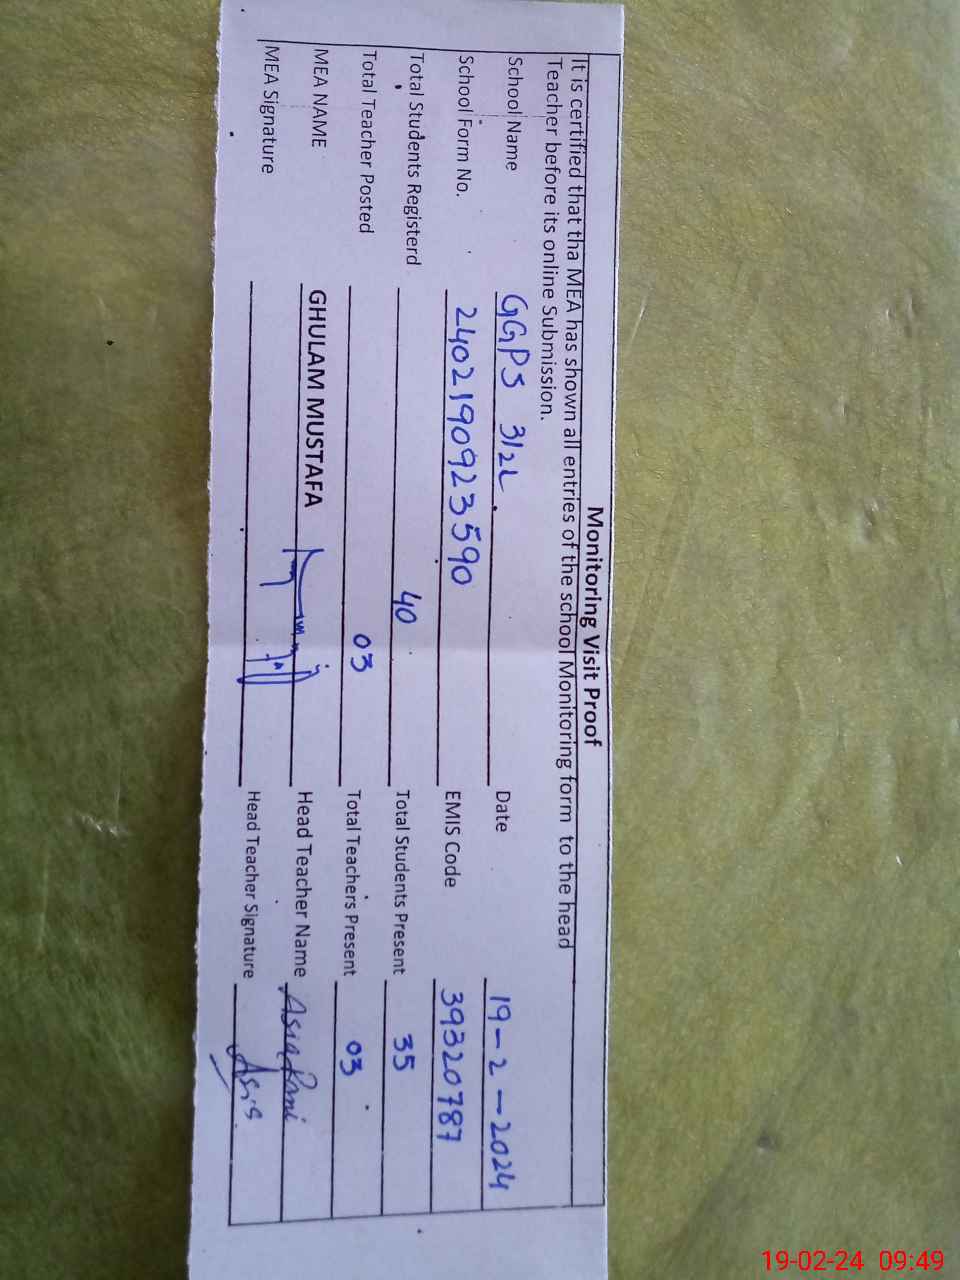 Monitoring Visit Proof
It is certified that tha MEA has shown all entries of the school Monitoring form to the head
Teacher before its online Submission.
School Name GGPS 3/2L Date 19-2-2024
School Form No. 2402190923590 EMIS Code 39320787
Total Students Registerd 40 Total Students Present 35
Total Teacher Posted 03 Total Teachers Present 03
MEA NAME GHULAM MUSTAFA Head Teacher Name Asia Rani
MEA Signature Head Teacher Signature Asia
19-02-24 09:49